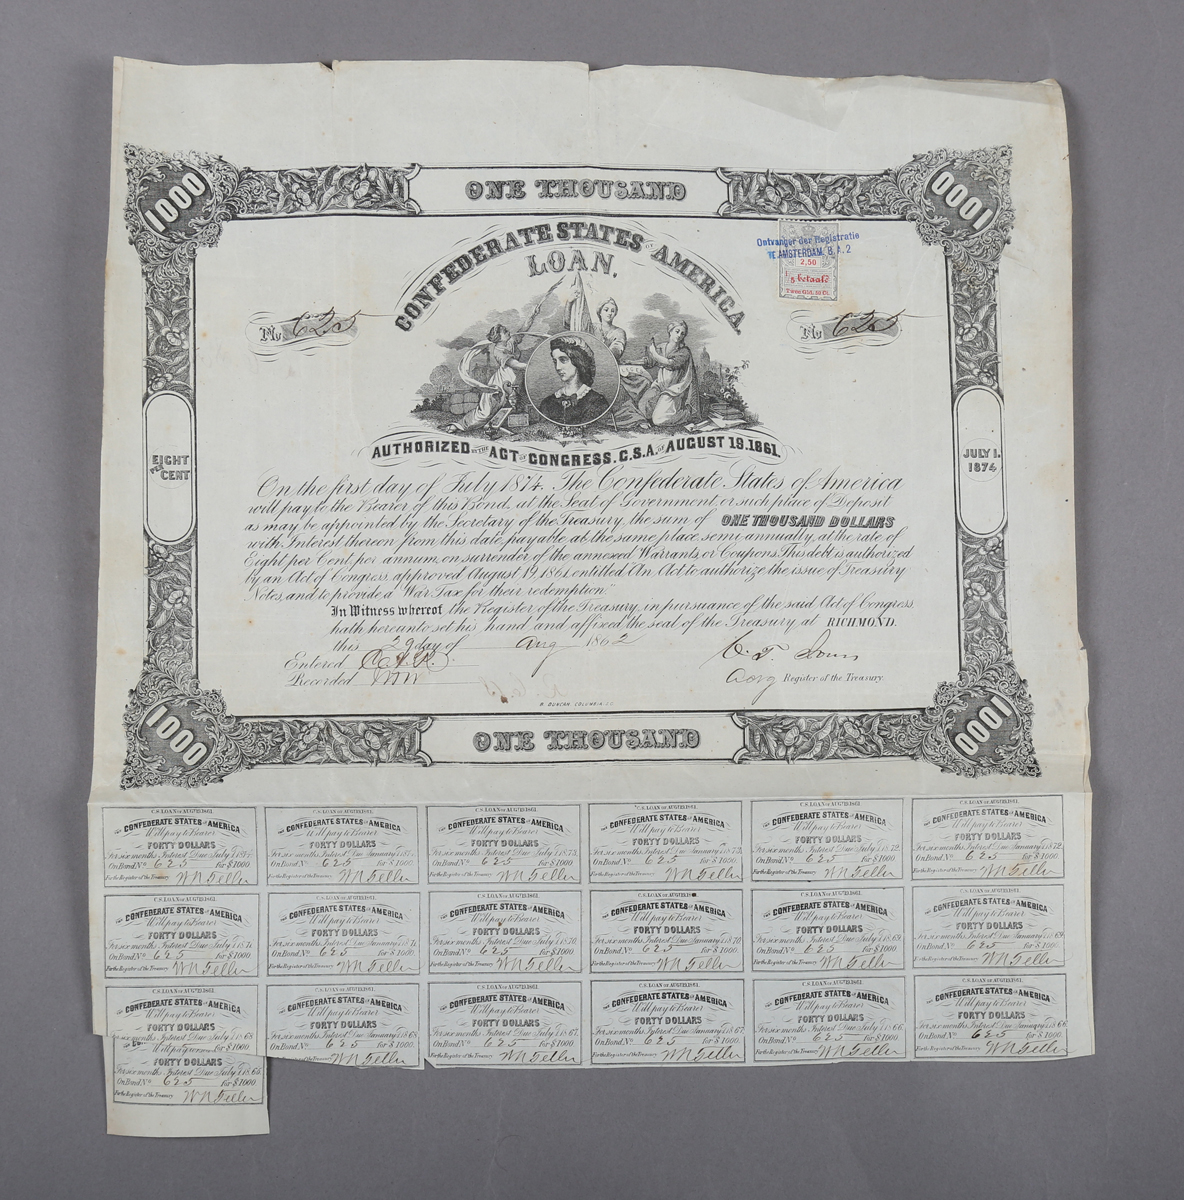 1000
ONE THOUSAND
1000
CONFEDERATE STATES OF AMERICA
LOAN.
Ontvanger der Registratie
TE AMSTERDAM, B.A. 2
2,50
5 betaald
Twee Gld. 50 Ct.
No. 625
No. 625
AUTHORIZED BY THE ACT OF CONGRESS. C.S.A. OF AUGUST 19. 1861.
EIGHT
PER
CENT
JULY 1.
1874
On the first day of July 1874. The Confederate States of America
will pay to the Bearer of this Bond, at the Seat of Government, or such place of Deposit
as may be appointed by the Secretary of the Treasury, the sum of ONE THOUSAND DOLLARS
with Interest thereon from this date, payable at the same place, semi-annually, at the rate of
Eight per Cent, per annum, on surrender of the annexed Warrants, or Coupons. This debt is authorized
by an Act of Congress, approved August 19, 1861, entitled "An Act to authorize the issue of Treasury
Notes, and to provide a War Tax for their redemption."
In Witness whereof the Register of the Treasury, in pursuance of the said Act of Congress,
hath hereunto set his hand and affixed the seal of the Treasury at RICHMOND.
this 29 day of Aug 1862
Entered
Recorded
Register of the Treasury.
1000
ONE THOUSAND
1000
C.S. LOAN OF AUG. 19. 1861.
The CONFEDERATE STATES OF AMERICA
Will pay to Bearer
FORTY DOLLARS
For six months Interest Due July 1. 1874.
On Bond, No. 625 for $1000.
For the Register of the Treasury
C.S. LOAN OF AUG. 19. 1861.
The CONFEDERATE STATES OF AMERICA
Will pay to Bearer
FORTY DOLLARS
For six months Interest Due January 1. 187
On Bond, No. 625 for $1000.
For the Register of the Treasury
C.S. LOAN OF AUG. 19. 1861.
The CONFEDERATE STATES OF AMERICA
Will pay to Bearer
FORTY DOLLARS
For six months Interest Due July 1. 1873.
On Bond, No. 625 for $1000.
For the Register of the Treasury
C.S. LOAN OF AUG. 19. 1861.
The CONFEDERATE STATES OF AMERICA
Will pay to Bearer
FORTY DOLLARS
For six months Interest Due January 1. 1873.
On Bond, No. 625 for $1000.
For the Register of the Treasury
C.S. LOAN OF AUG. 19. 1861.
The CONFEDERATE STATES OF AMERICA
Will pay to Bearer
FORTY DOLLARS
For six months Interest Due July 1. 1872.
On Bond, No. 625 for $1000.
For the Register of the Treasury
C.S. LOAN OF AUG. 19. 1861.
The CONFEDERATE STATES OF AMERICA
Will pay to Bearer
FORTY DOLLARS
For six months Interest Due January 1. 1872.
On Bond, No. 625 for $1000.
For the Register of the Treasury
The CONFEDERATE STATES OF AMERICA
Will pay to Bearer
FORTY DOLLARS
For six months Interest Due July 1. 1871.
On Bond, No. 625 for $1000.
For the Register of the Treasury
The CONFEDERATE STATES OF AMERICA
Will pay to Bearer
FORTY DOLLARS
For six months Interest Due January 1. 1871.
On Bond, No. 625 for $1000.
For the Register of the Treasury
The CONFEDERATE STATES OF AMERICA
Will pay to Bearer
FORTY DOLLARS
For six months Interest Due July 1. 1870.
On Bond, No. 625 for $1000.
For the Register of the Treasury
C.S. LOAN OF AUG. 19. 186
The CONFEDERATE STATES OF AMERICA
Will pay to Bearer
FORTY DOLLARS
For six months Interest Due January 1. 1870.
On Bond, No. 625 for $1000.
For the Register of the Treasury
C.S. LOAN OF AUG. 19. 1861.
The CONFEDERATE STATES OF AMERICA
Will pay to Bearer
FORTY DOLLARS
For six months Interest Due July 1. 1869.
On Bond, No. 625 for $1000.
For the Register of the Treasury
C.S. LOAN OF AUG. 19. 1861.
The CONFEDERATE STATES OF AMERICA
Will pay to Bearer
FORTY DOLLARS
For six months Interest Due January 1. 1869.
On Bond, No. 625 for $1000.
For the Register of the Treasury
C.S. LOAN OF AUG. 19. 1861.
The CONFEDERATE STATES OF AMERICA
Will pay to Bearer
FORTY DOLLARS
For six months Interest Due July 1. 1868.
for $1000.
C.S. LOAN OF AUG. 19. 1861.
The CONFEDERATE STATES OF AMERICA
Will pay to Bearer
FORTY DOLLARS
For six months Interest Due January 1. 1868.
On Bond, No. 625 for $1000.
Register of the Treasury
C.S. LOAN OF AUG. 19. 1861.
The CONFEDERATE STATES OF AMERICA
Will pay to Bearer
FORTY DOLLARS
For six months Interest Due July 1. 1867.
On Bond, No. 625 for $1000.
For the Register of the Treasury
C.S. LOAN OF AUG. 19. 1861.
The CONFEDERATE STATES OF AMERICA
Will pay to Bearer
FORTY DOLLARS
For six months Interest Due January 1. 1867.
On Bond, No. 625 for $1000.
For the Register of the Treasury
The CONFEDERATE STATES OF AMERICA
Will pay to Bearer
FORTY DOLLARS
For six months Interest Due July 1. 1866.
On Bond, No. 625 for $1000.
For the Register of the Treasury
The CONFEDERATE STATES OF AMERICA
Will pay to Bearer
FORTY DOLLARS
For six months Interest Due January 1. 1866.
On Bond, No. 625 for $1000.
For the Register of the Treasury
Will pay to
FORTY DOLLARS
For six months Interest Due July 1. 1865.
On Bond, No. 625 for $1000.
For the Register of the Treasury